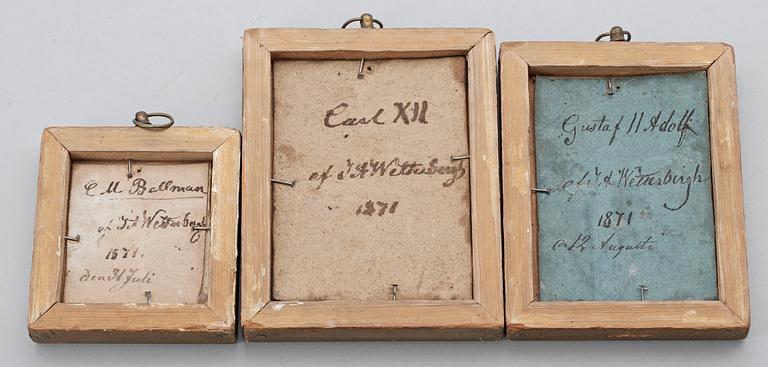 C M Bellman
af J A Wetterbergh
1871.
den 31 Juli
Carl XII
af J A Wetterbergh
1871
Gustaf II Adolf
af J A Wetterbergh
1871
12 Augusti